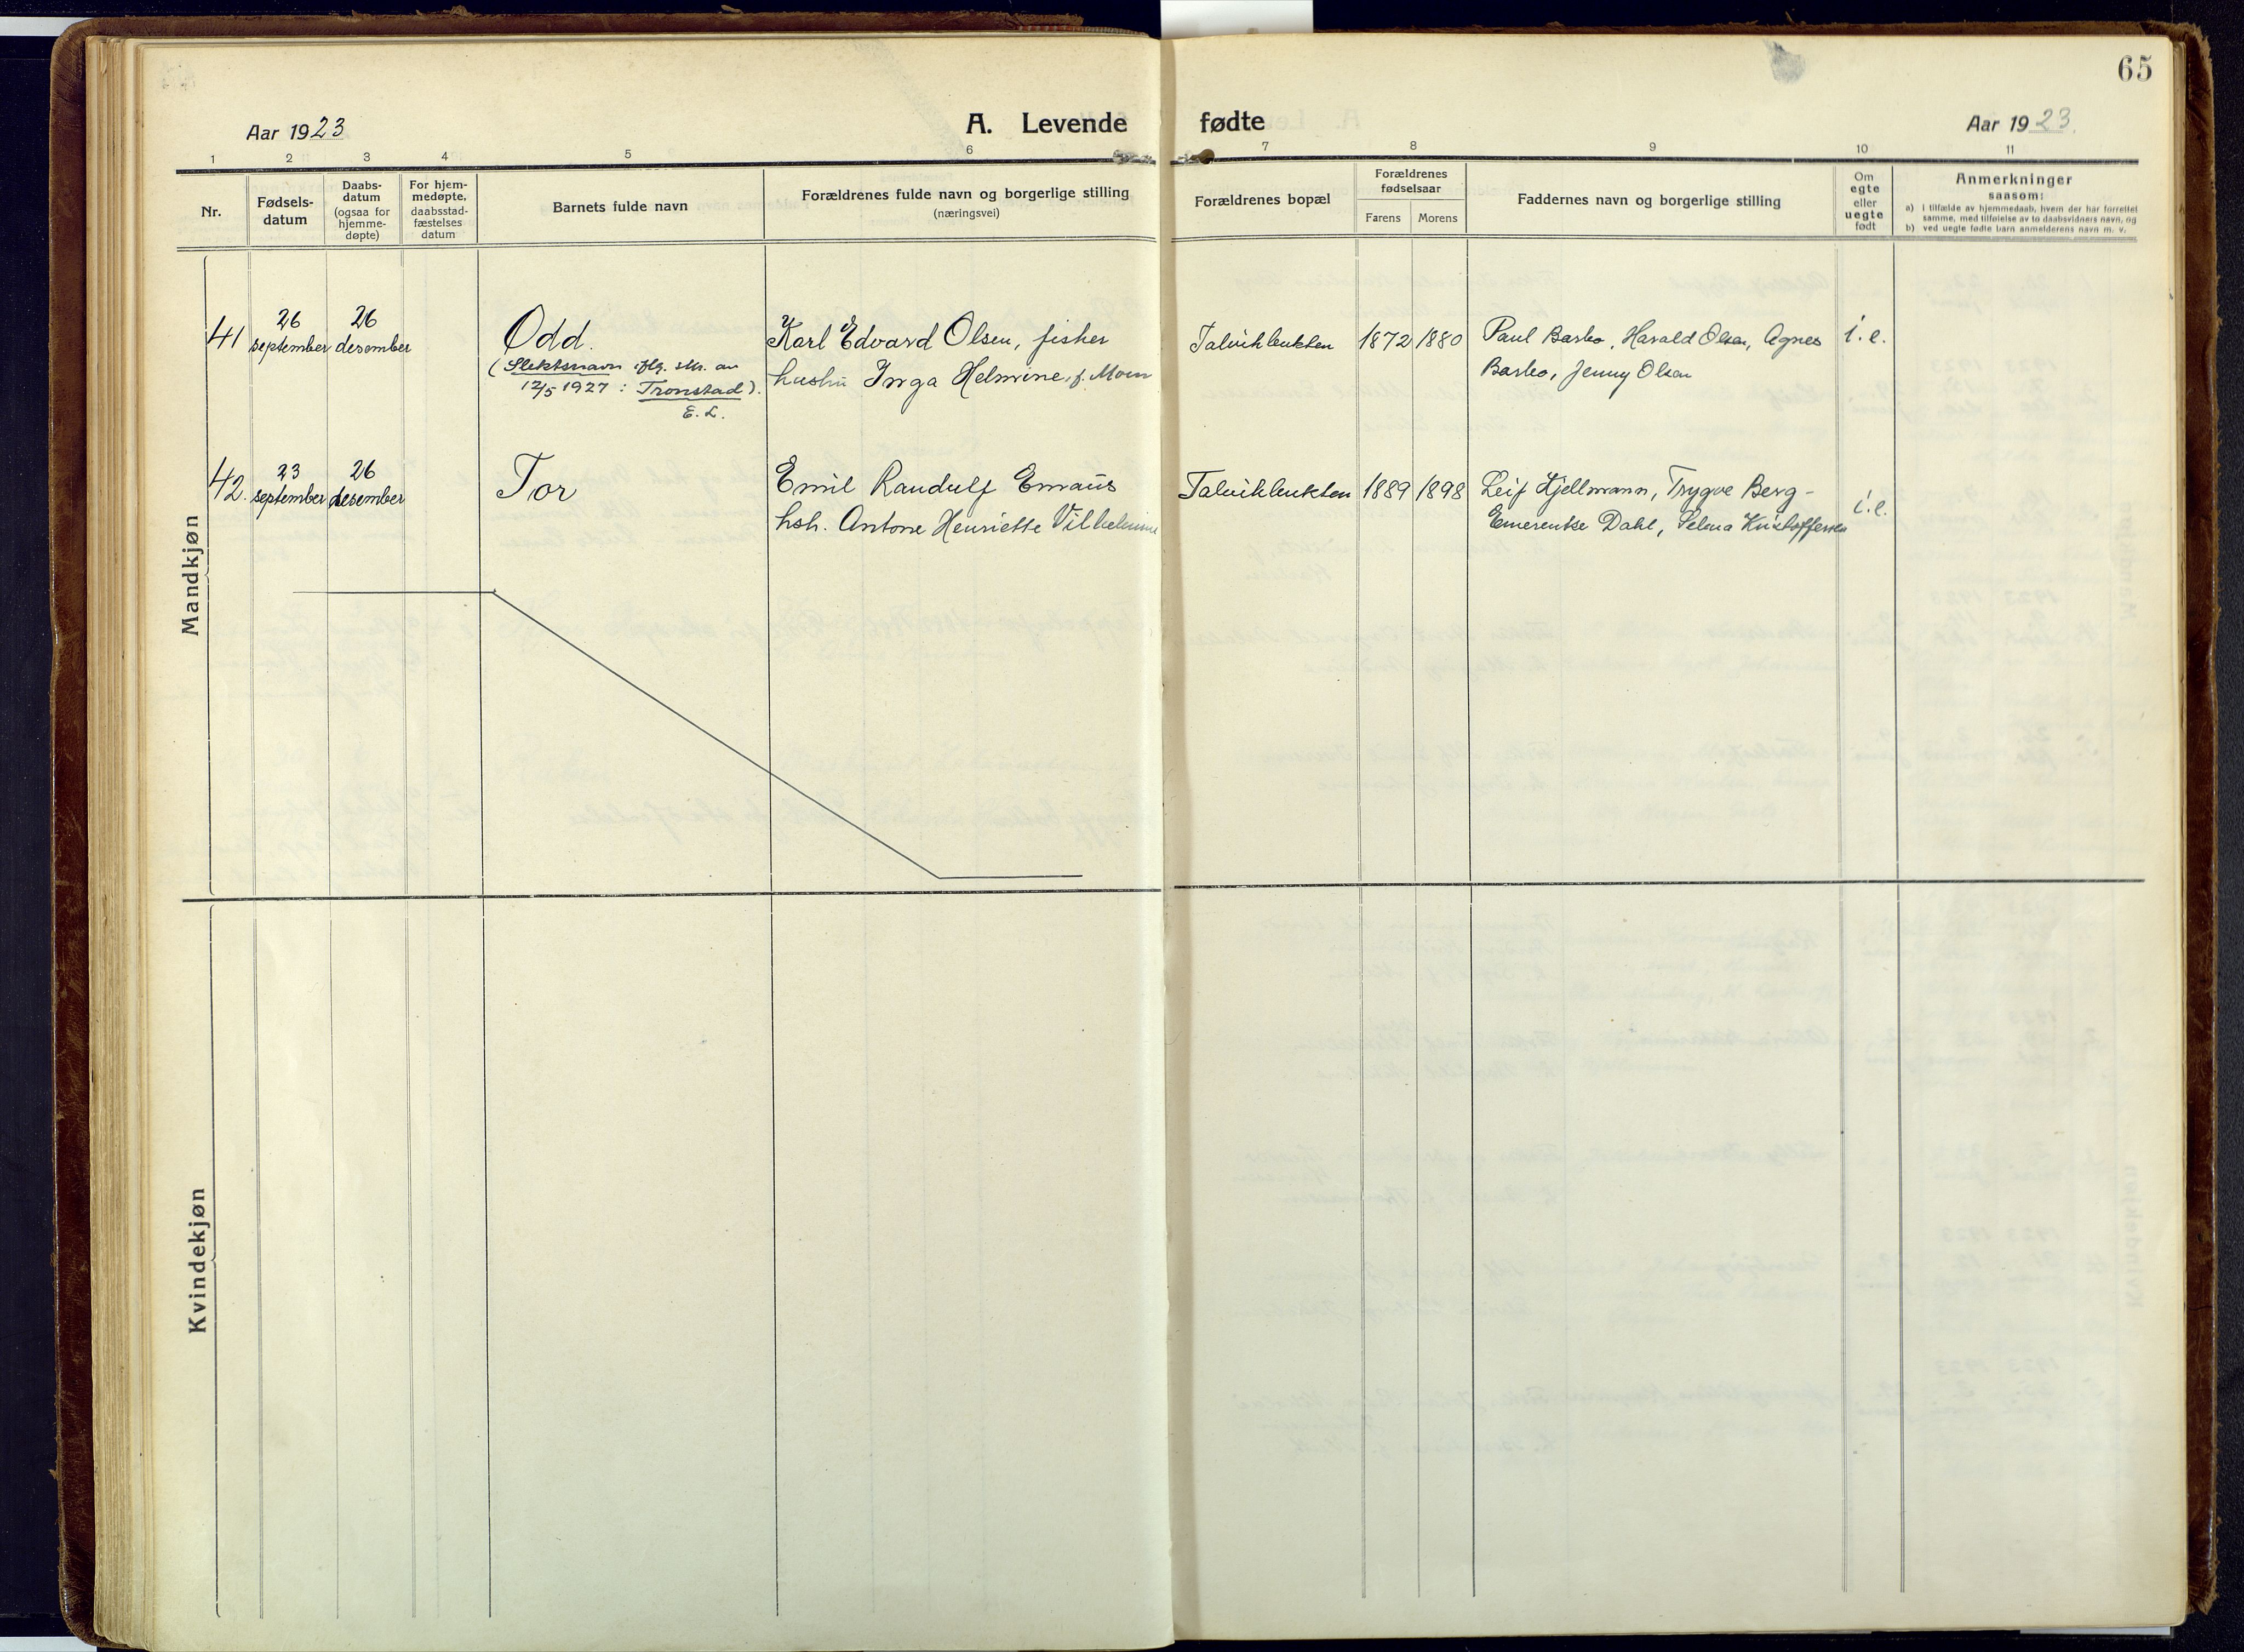 65
Aar 1923
A. Levende fødte
Aar 1923.
1 2 3 4 5 6 7 8 9 10 11
Nr.
Fødsels-
datum
Daabs-
datum
(ogsaa for
hjemme-
døpte)
For hjem-
medøpte,
daabsstad-
fæstelses
datum
Barnets fulde navn
Forældrenes fulde navn og borgerlige stilling
(næringsvei)
Forældrenes bopæl
Forældrenes
fødselsaar
Farens Morens
Faddernes navn og borgerlige stilling
Om
egte
eller
uegte
født
Anmerkninger
saasom:
a) i tilfælde av hjemmedaab, hvem der har forrettet
samme, med tilføielse av to daabsvidners navn, og
b) ved uegte fødte barn anmelderens navn m. v.
Mandkjøn
41
26
september
26
desember
Odd.
(Slektsnavn iflg. skr. av
12/5 1927: Tronstad).
E. L.
Karl Edvard Olsen, fisker
hustru Inga Helmine, f. Moen
Talvikbukten
1872 1880
Paul Barbo, Harald Olsen, Agnes
Barbo, Jenny Olsen
i. e.
42.
23
september
26
desember
Tor
Emil Randulf Emaus
hsh. Antone Henriette Vilhelmine
Talvikbukten
1889 1898
Leif Kjellmann, Trygve Berg-
Emerentse Dahl, Selma Kristoffersen
i. e.
Kvindekjøn